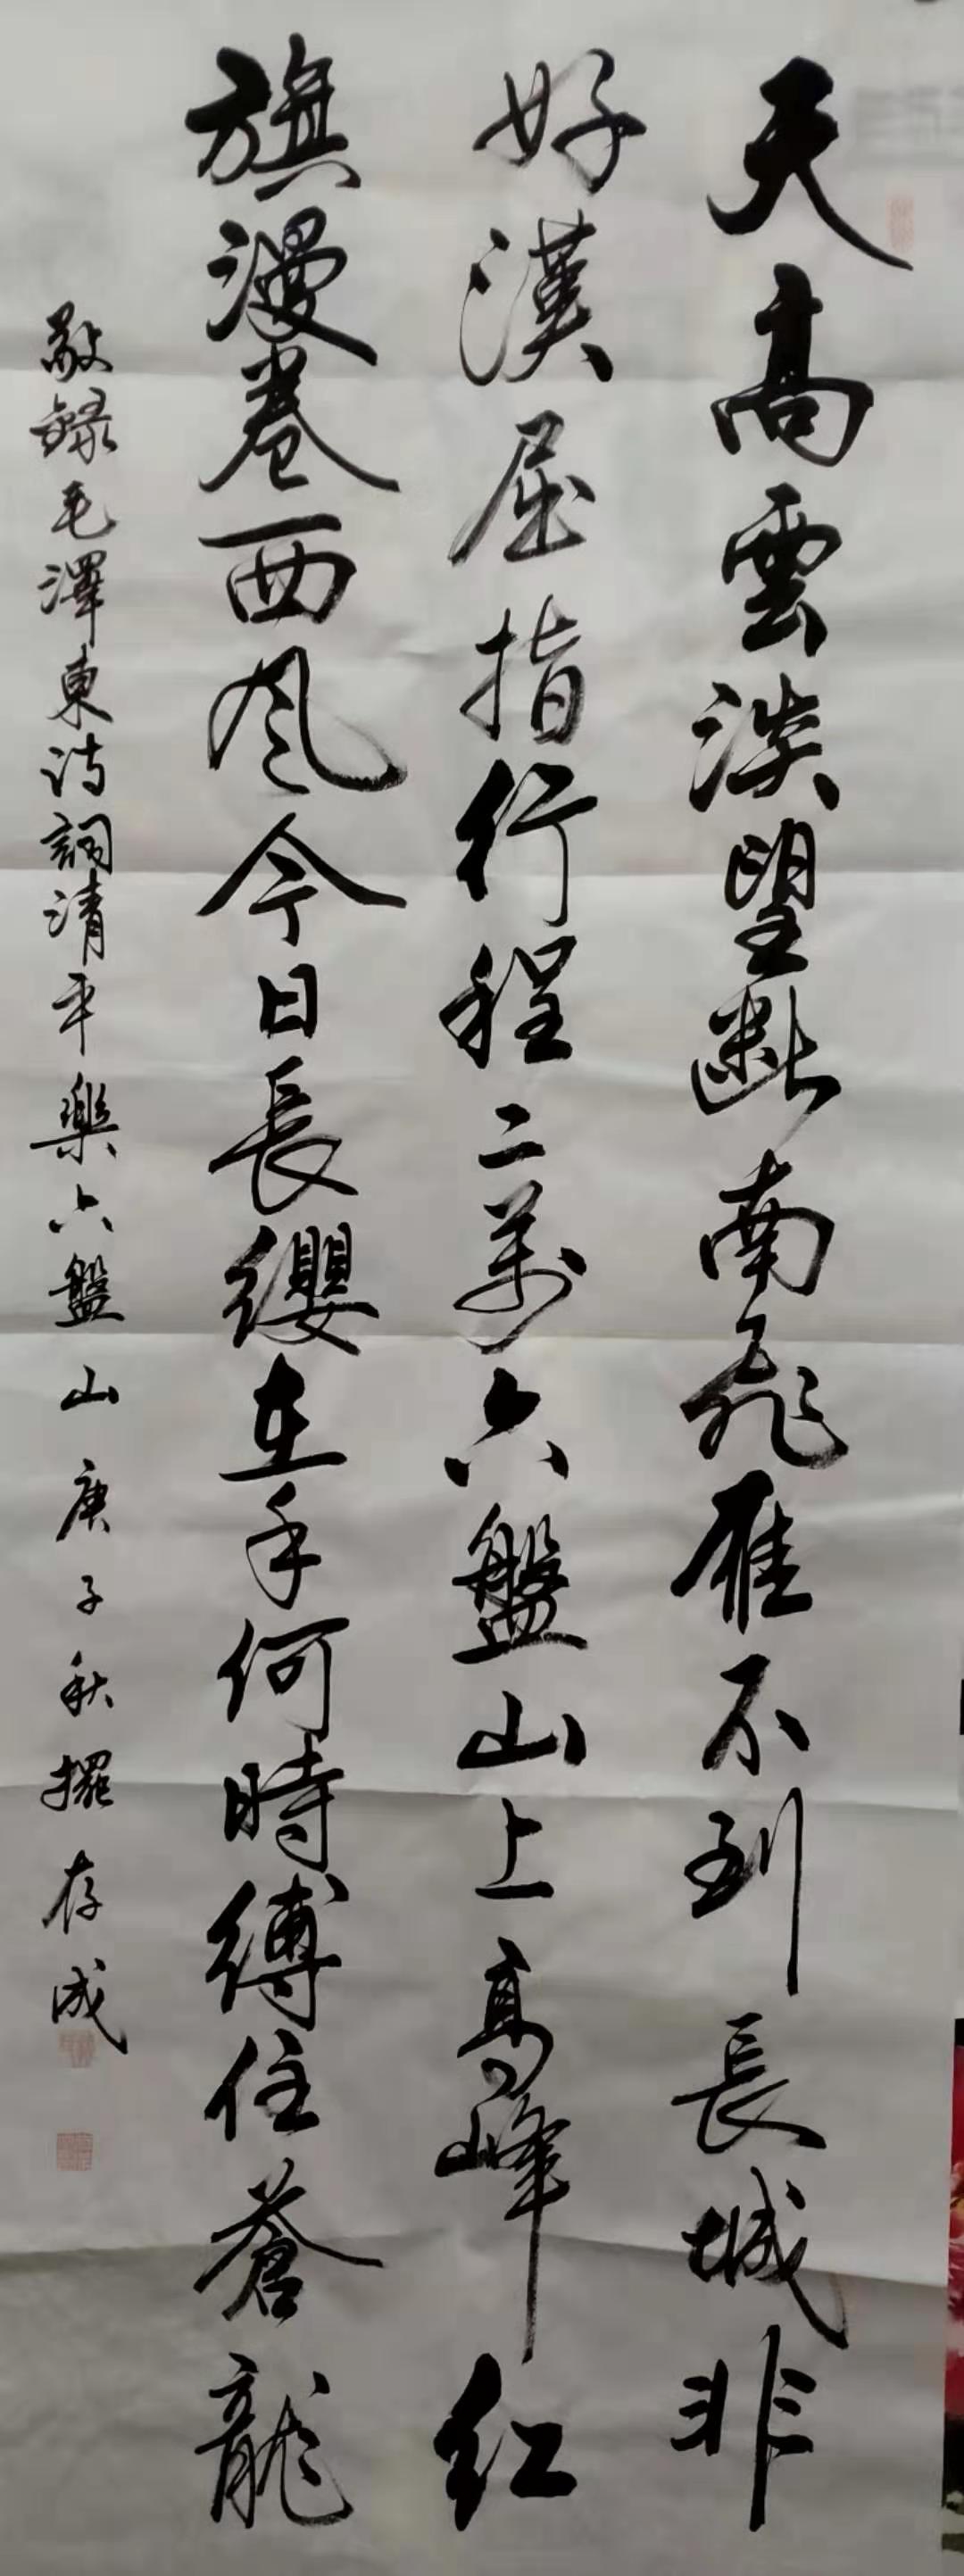 天高雲淡望斷南飛雁不到長城非
好漢屈指行程二萬六盤山上高峰紅
旗漫卷西风今日長纓在手何時縛住蒼龍
敬錄毛澤東诗詞清平樂六盤山庚子秋擺存成